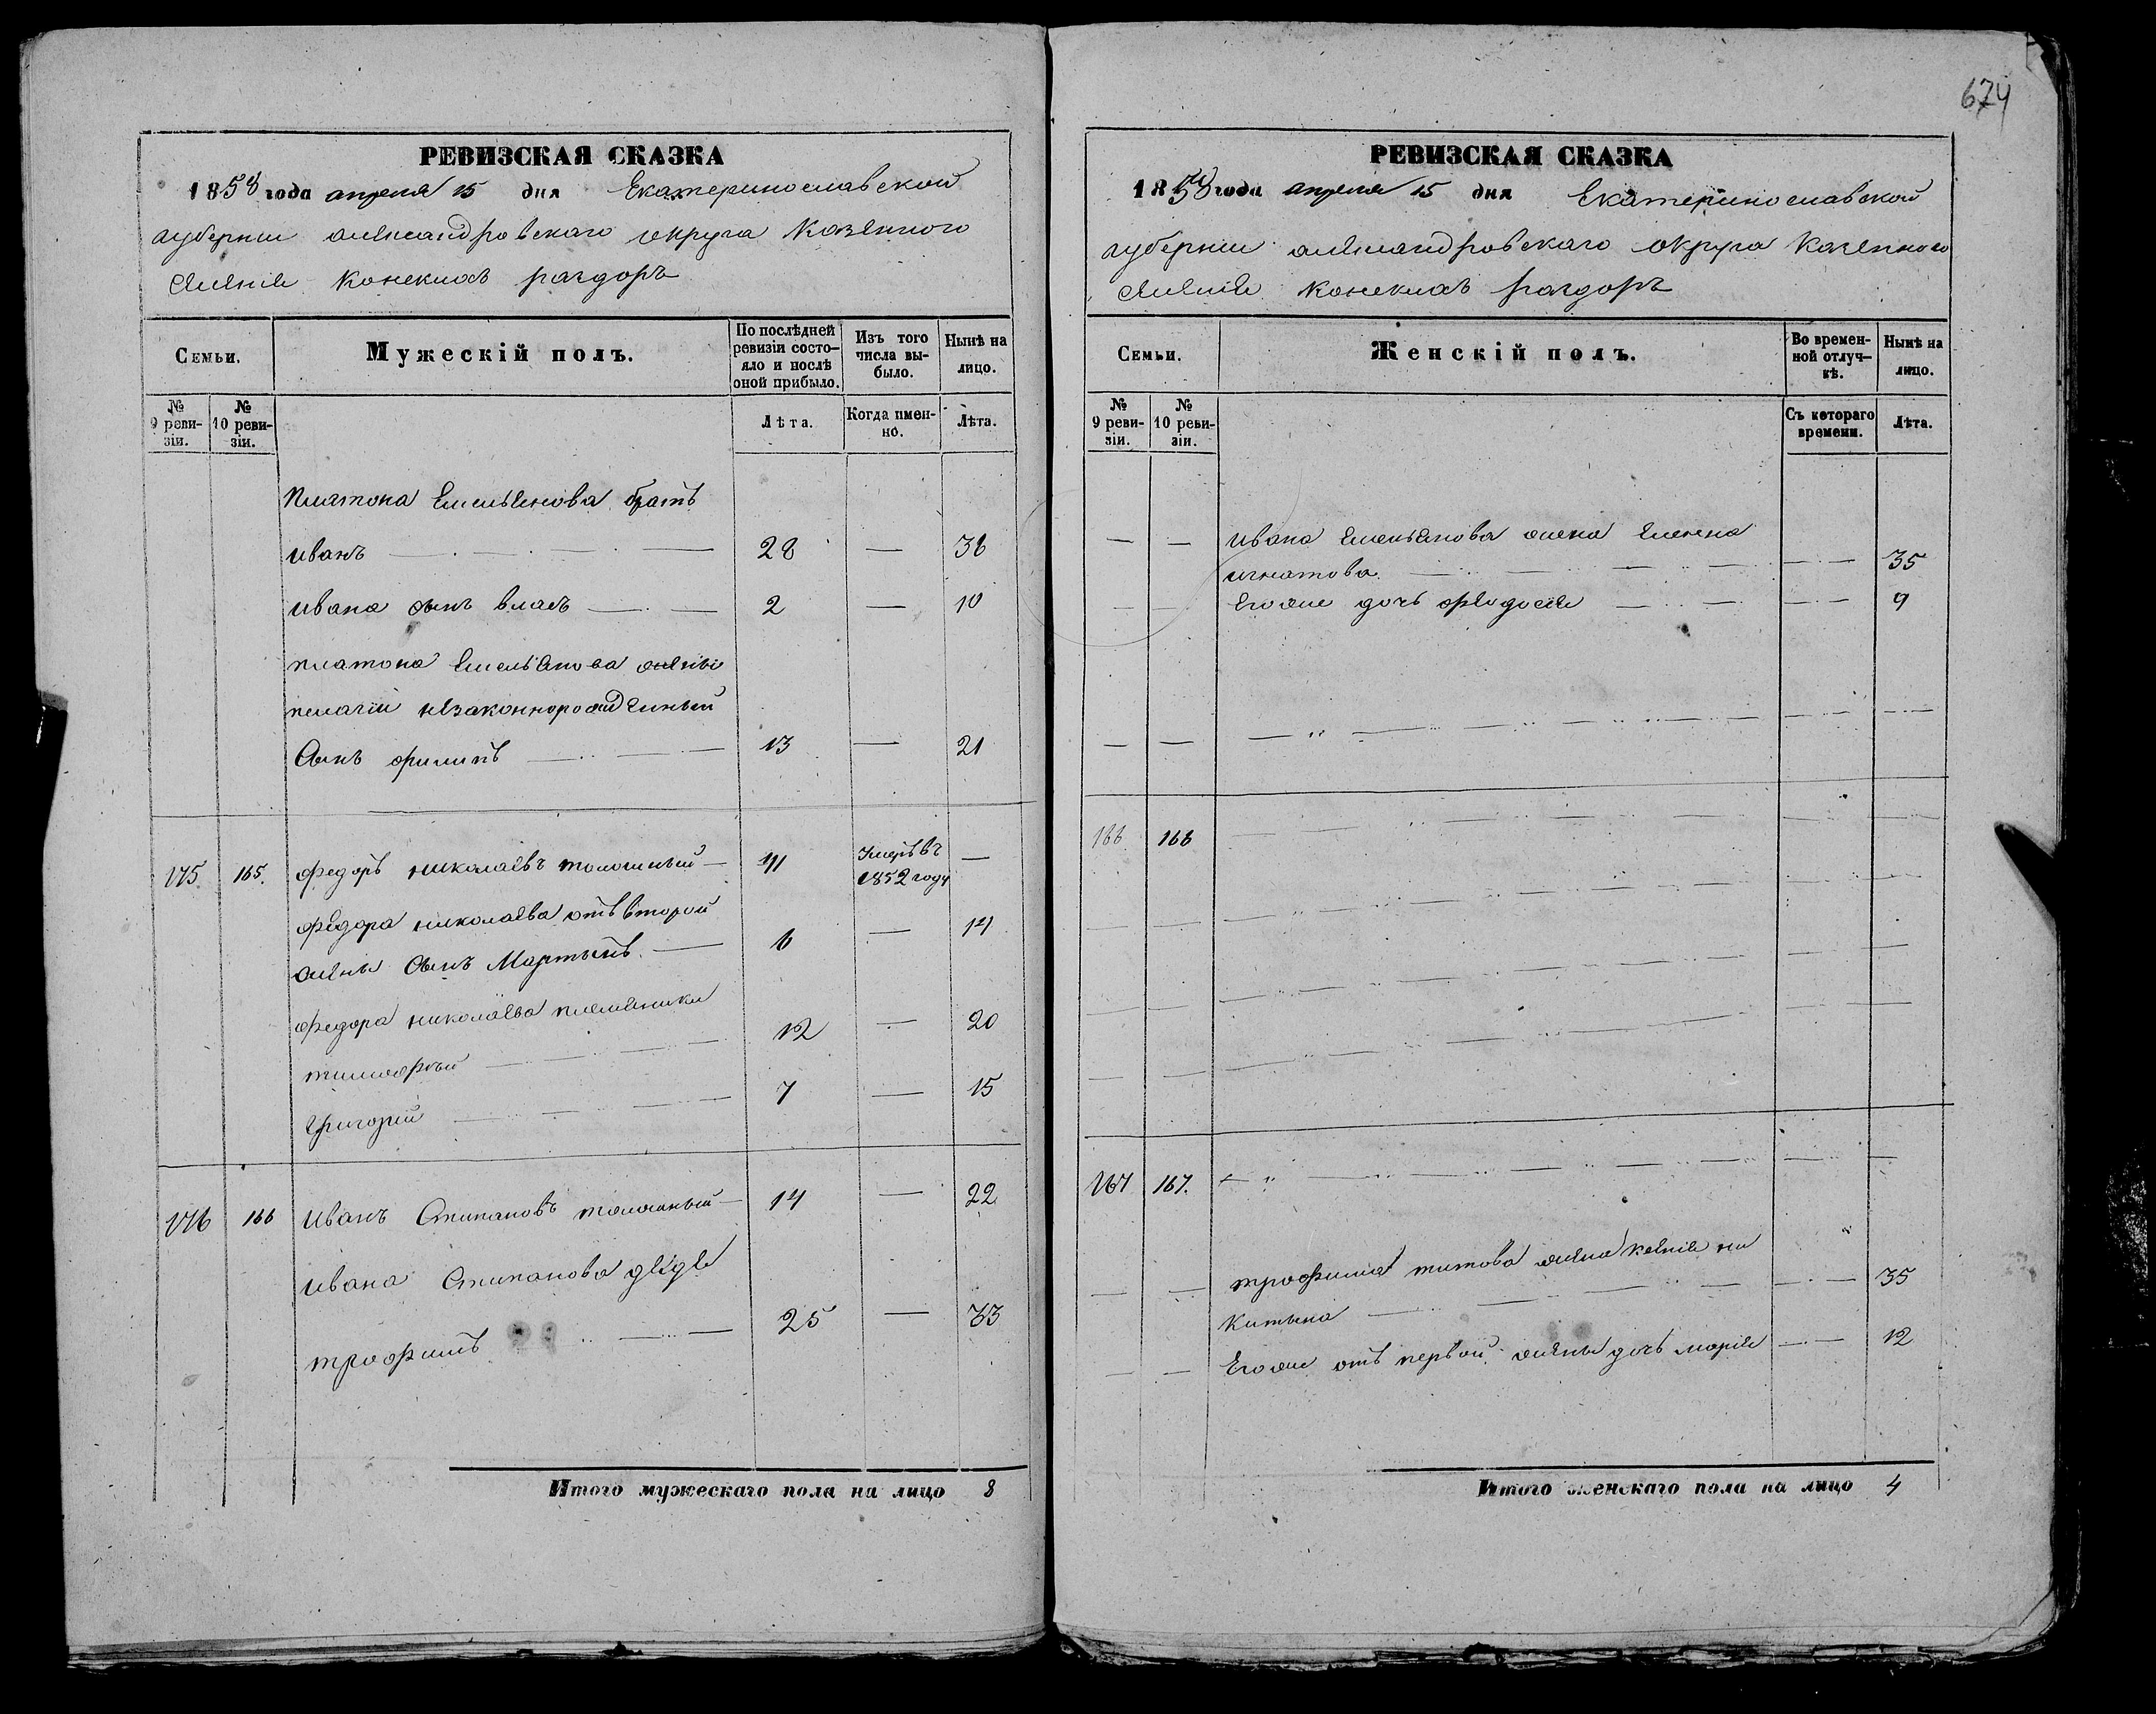 674
РЕВИЗСКАЯ СКАЗКА
1858 года апреля 15 дня Екатеринославской
губернии александровскаго округа казенного
селения Конскихъ раздоръ
Семьи.
Мужескій полъ.
По послѣдней ревизіи состояло и послѣ оной прибыло.
Изъ того числа выбыло.
Нынѣ на лицо.
№ 9 ревизіи.
№ 10 ревизіи.
Лѣта.
Когда именно.
Лѣта.
Платона Емельянова братъ
иванъ 28 — 36
ивана сынъ власъ 2 — 10
платона Емельянова
пелагіи незаконнорожденный
Сынъ филипъ 13 — 21
175. 165. федоръ николаевъ — 41 Умеръ въ 1852 году —
федора николаева отъ второй
жены сынъ Мартынъ. — 6 — 14
федора николаева племяники
тимофрей 12 — 20
Григорій 7 — 15
176 166 иванъ Степановъ — 14 — 22
ивана Степанова дядя
трофимъ 25 — 33
Итого мужескаго пола на лицо 8
РЕВИЗСКАЯ СКАЗКА
1858 года апреля 15 дня Екатеринославской
губернии александровскаго округа казенного
селения Конскихъ раздоръ
Семьи.
Женскій полъ.
Во временной отлучкѣ.
Нынѣ на лицо.
№ 9 ревизіи.
№ 10 ревизіи.
Съ котораго времени.
Лѣта.
— — ивана Емельянова жена Елена
игнатова. — 35
— — Егоже дочь феодосия — 9
166 166
167 167.
— — трофима титова жена ксения ни
китина — 35
— — Егоже отъ первой жены дочь мария — 12
Итого женскаго пола на лицо 4